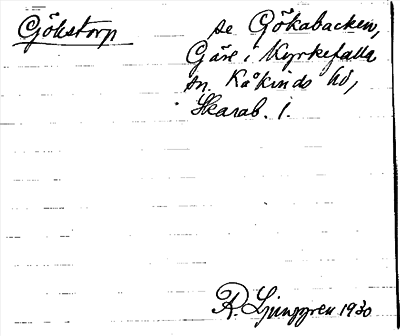 Gökstorp se Gökabacken,
Gäre i Kyrkefalla
sn. Kåkinds hd,
Skarab. l.
R. Ljunggren 1930